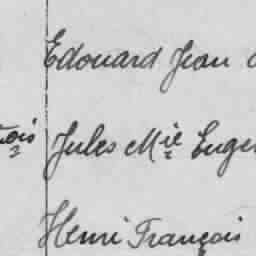 Edouard Jean
Jules Mie Euge
Henri François